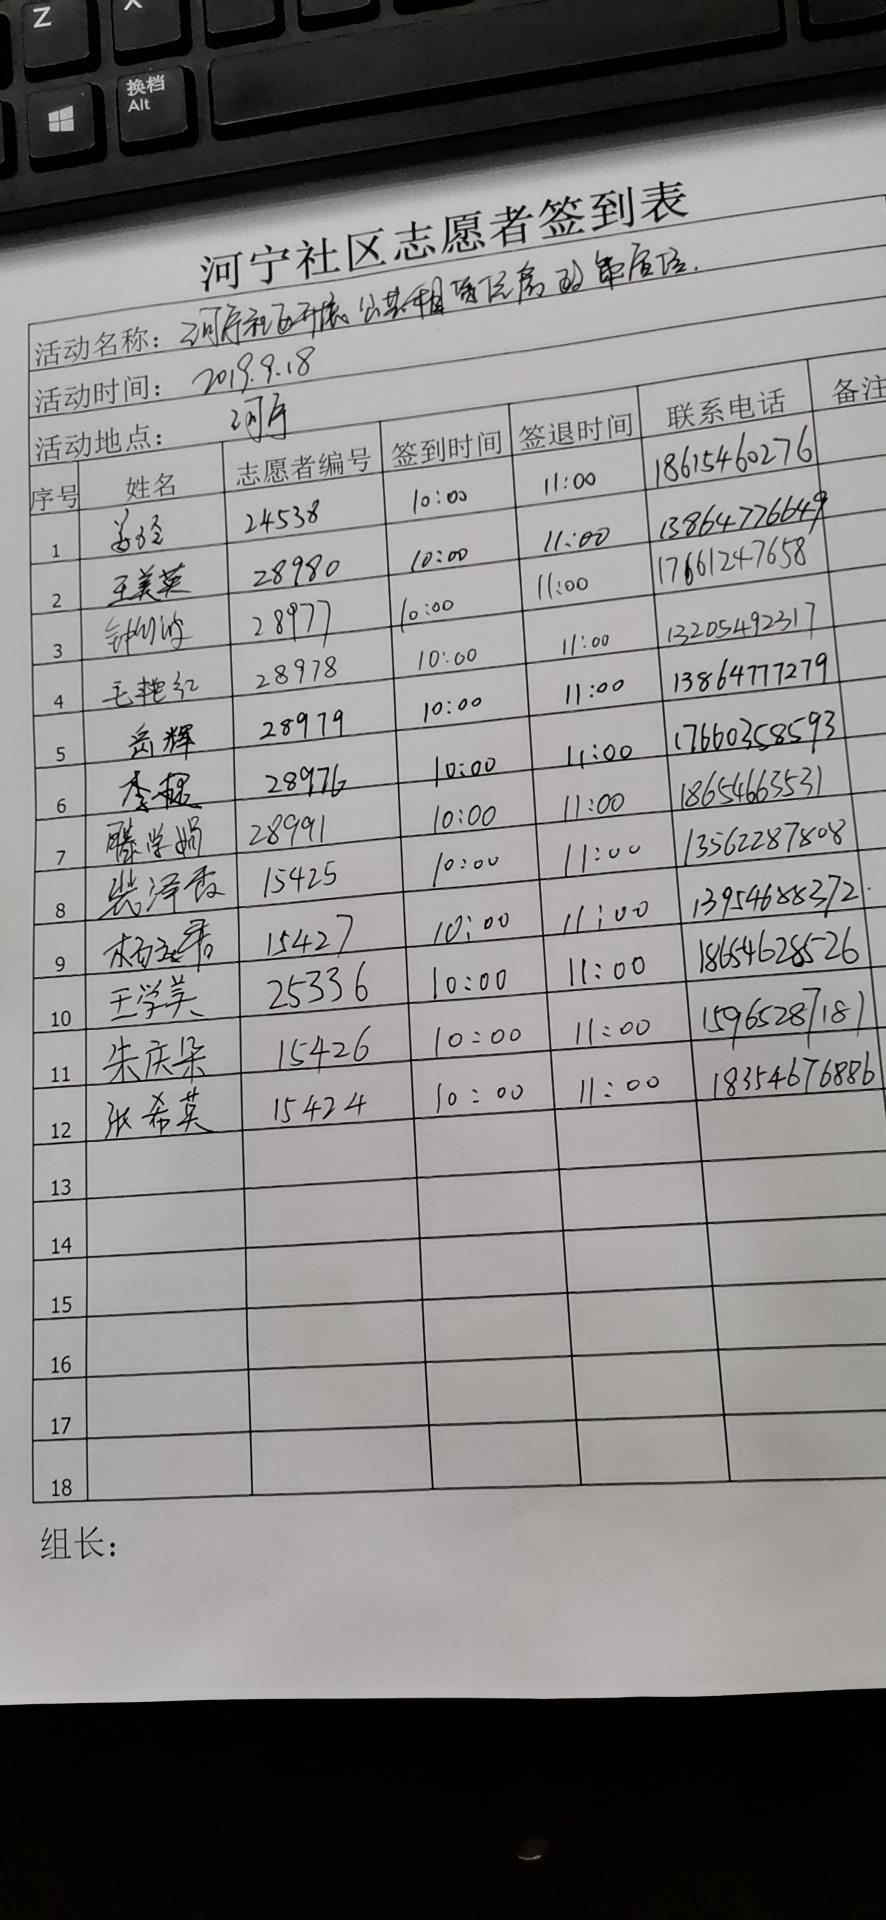 Z
X
换档
Alt
河宁社区志愿者签到表
活动名称: 河宁社区开展公共租赁住房政策宣传.
活动时间: 2019.9.18
活动地点: 河宁
序号 姓名 志愿者编号 签到时间 签退时间 联系电话 备注
1 24538 10:00 11:00 18615460276
2 王美英 28980 10:00 11:00 13864776649
3 28977 10:00 11:00 17661247658
4 毛艳红 28978 10:00 11:00 13205492317
5 岳辉 28979 10:00 11:00 13864777279
6 李 28976 10:00 11:00 17660358593
7 滕学娟 28991 10:00 11:00 18654663531
8 裴泽霞 15425 10:00 11:00 13562287808
9 杨 15427 10:00 11:00 13954688372.
10 王学美 25336 10:00 11:00 18654628526
11 朱庆朵 15426 10:00 11:00 15965287181
12 张希英 15424 10:00 11:00 18354676886
13
14
15
16
17
18
组长: